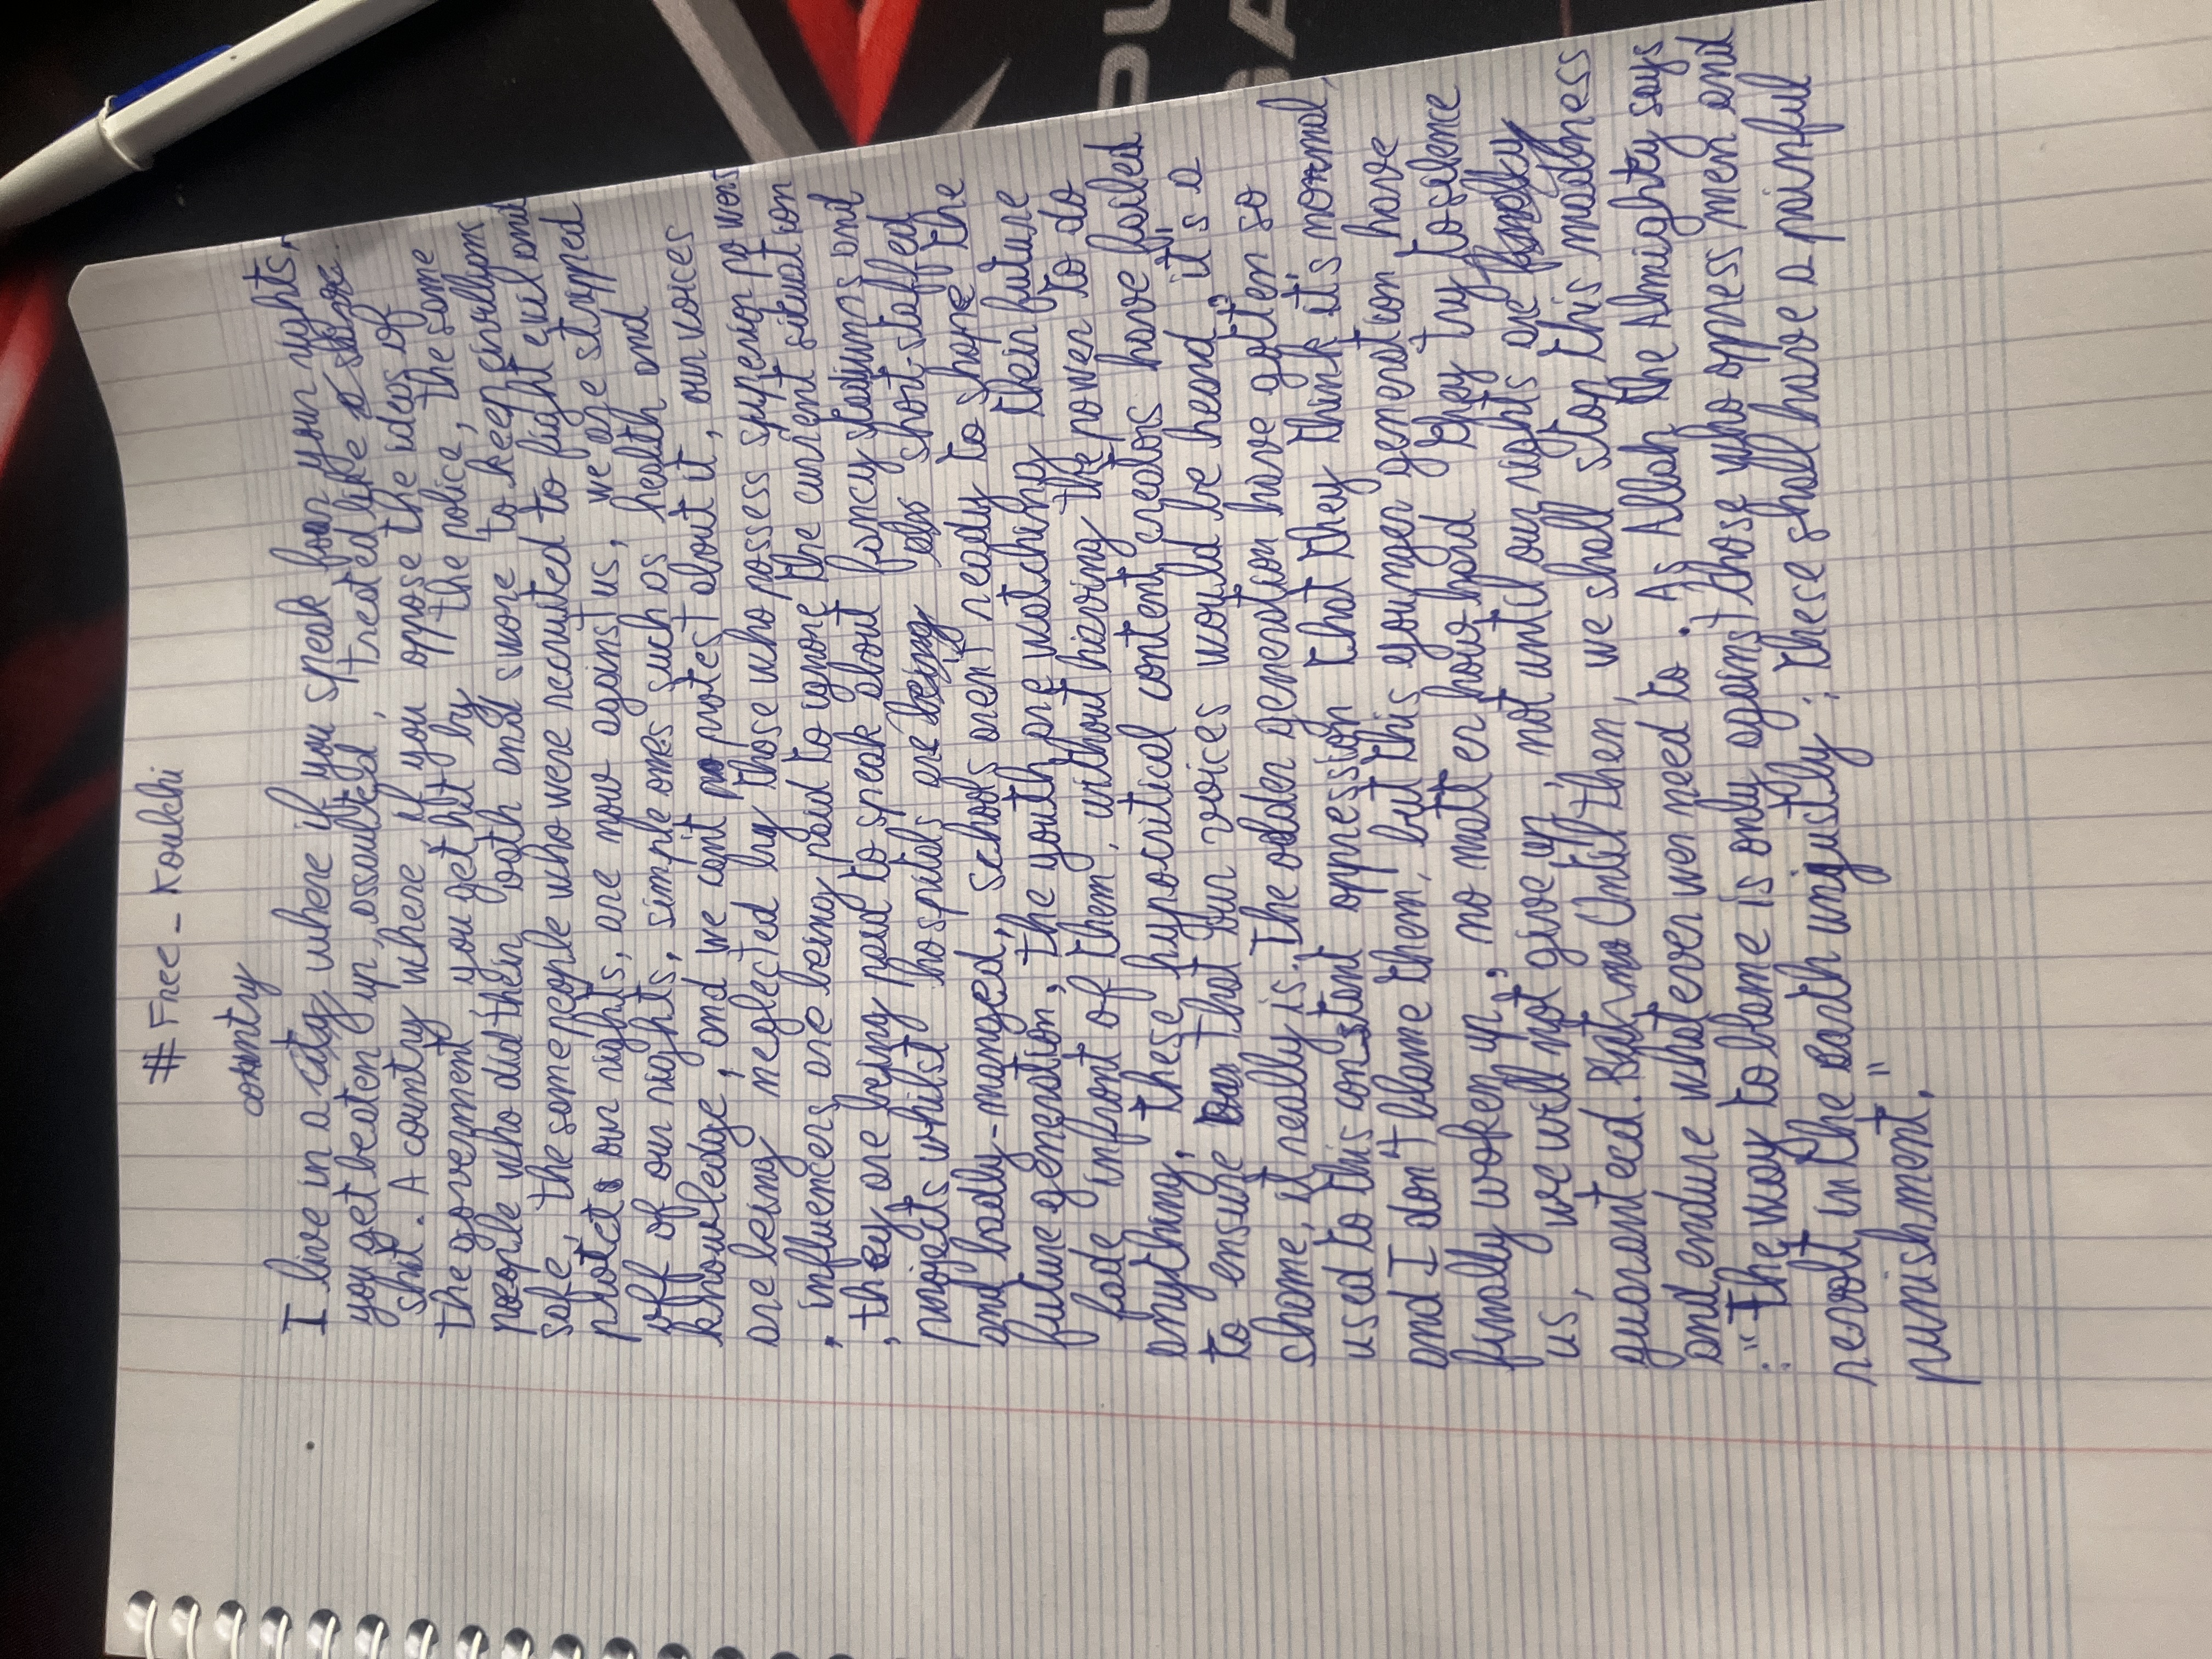 #Free-Koukhi
country
I live in a city where if you speak for your rights,
you get beaten up, assaulted, treated like a slave
shit. A country where if you oppose the ideas of
the goverment you get hit by opp the police, the same
people who did their oath and swore to keep civillians
safe, the same people who were recruited to fight evil and
protect our rights, are now against us, we are stripped
off of our rights, simple ones such as health and
knowledge, and we cant pro protest about it, our voices
are being neglected by those who possess superior powers
, influencers are being paid to ignore the current situation
, they are being paid to speak about fancy stadiums and
projects whilst hospitals are being short-staffed
and badly-manged, schools arent ready to shape the
future genertion, the youth are watching their future
fade infront of them, without having the power to do
anything, these hypocritical content creators have failed
to ensure that our voices would be heard, it's a
shame, it really is. The older generation have gotten so
used to this constant oppression that they think it's normal,
and I don't blame them, but this younger generation have
finally woken up, no matter how hard they try to silence
us, we will not give up, not until our rights are finally
guaranteed. But no Until then, we shall stop this madness
and endure what ever wer need to. As Allah the Almighty says
:"The way to blame is only against those who oppress men and
revolt in the earth unjustly; these shall have a painful
punishment."
PU
GA